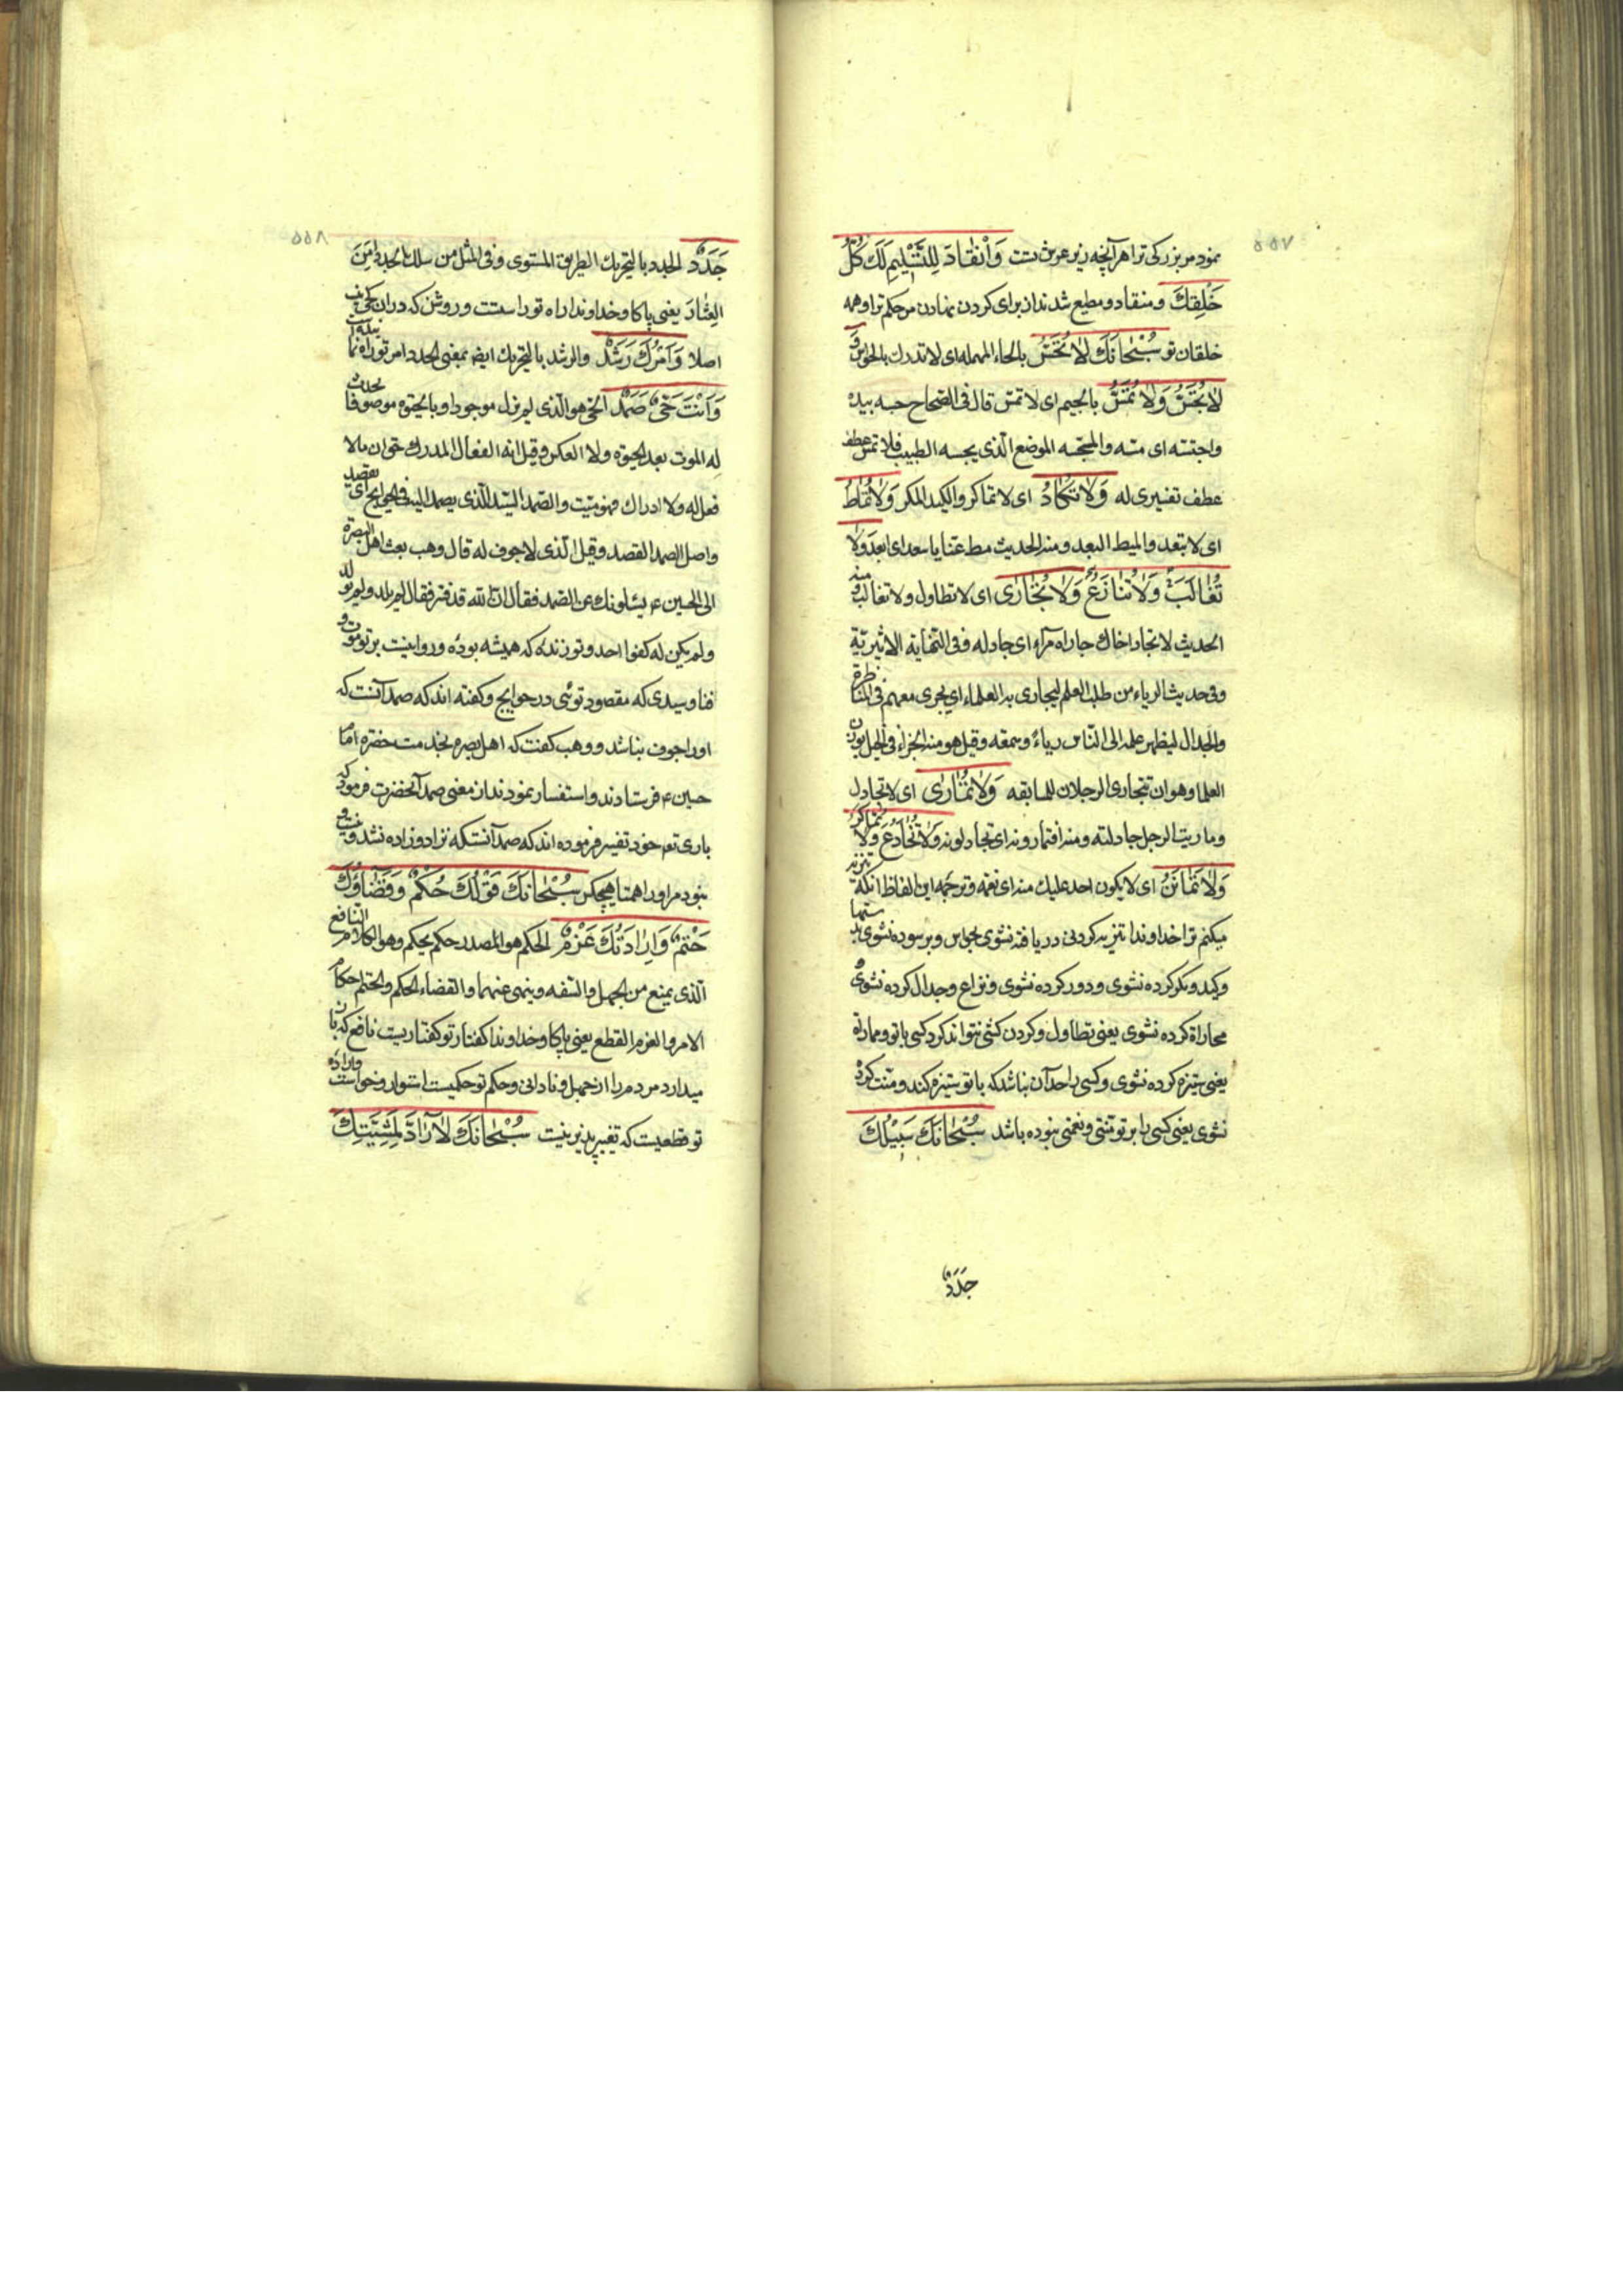 ۵۵۷
نمود مر بزرکی ترا هر آنچه زیر عرش تست وَانْقٰادَ لِلتَّسْلِيمِ لَكَ كُلُّ
خَلْقِكَ و منقاد و مطیع شدند از برای کردن نهادن مر حکم ترا و همه
خلقان تو سُبْحٰانَكَ لٰا تُحَسُّ بالحاء المهمله ای لا تدرك بالحواس و
لٰا تُجَسُّ وَلٰا تُمَسُّ بالجیم ای لا تمس قال فی الصحاح جسه بیده
واجتسه ای مسه والمجسه الموضع الّذی یجسه الطبیب فلا تمس عطف
عطف تفسیری له وَلٰا تُكٰادُ ای لا تماکر والکید المکر وَلٰا تُمٰاطُ
ای لا تبعد والمیط البعد ومنه الحدیث مط عنا یا سعد ای ابعد وَلٰا
تُغٰالَبُ وَلٰا تُنٰازَعُ وَلٰا تُجٰارٰى ای لا تطاول ولا تغالب ومنه
الحدیث لا تجار اخاك جاراه مراء ای جادله وفی النهایة الاثیریّة
وفی حدیث الریاء من طلب العلم لیجاری به العلماء ای یجری معهم فی المناظرة
والجدال لیظهر علمه الی النّاس ریاءً وسمعه وقیل هو منه الجراء فی الخیل
العلما وهو ان تتجاری الرجلان للمسابقه وَلٰا تُمٰارٰى ای لا تجادل
وماریت الرجل جادلته ومنه افتمارونه ای تجادلونه وَلٰا تُخٰادَعُ وَلٰا تُمٰاكَرُ
وَلٰا تُمٰانَنُ ای لا یکون احد علیك منه ای نعمه و ترجمه این الفاظ انکه تنزیه
میکنم ترا خداوندا تنزیه کردنی دریافته نشوی بحواس و برسوده نشوی بدستها
و کید و مکر کرده نشوی و دور کرده نشوی و نزاع و جدال کرده نشوی و
مجاراة کرده نشوی یعنی تطاول و کردن کشی نتواند کرد کسی با تو و مماراة
یعنی ستیزه کرده نشوی و کسی را حد آن نباشد که با تو ستیزه کند و منت کرده
نشوی یعنی کسی را بر تو منتی و نعمتی نبوده باشد سُبْحٰانَكَ سَبِيلُكَ
جَدَدٌ
۵۵۸
جَدَدٌ الجدد بالتحریك الطریق المستوی وفی المثل من سلك الجدد امن
العثار یعنی پاکا و خداوندا راه تو راستست و روشن که در ان کجی نیست
اصلا وَاَمْرُكَ رَشَدٌ والرشد بالتحریك ایضا بمعنی الجدد امر تو راه نماینده است
وَاَنْتَ حَیٌّ صَمَدٌ الحی هو الّذی لم یزل موجودا وبالحیوة موصوفا لم یحدث
له الموت بعد الحیوة ولا العکس وقیل انه الفعال المدرك حتی ان ما لا
فعل له ولا ادراك فهو میّت والصّمد السّید الّذی یصمد الیه فی الحوایج ای یقصد
واصل الصمد القصد وقیل الّذی لا جوف له قال وهب بعث اهل البصرة
الی الحسین ع یسئلونك عن الصّمد فقال انّ اللّه قد فسّر فقال لم یلد ولم یولد
ولم یکن له کفوا احد و تو زنده که همیشه بوده و روا نیست بر تو موت و
فنا و سیدی که مقصود توئی در حوایج و کفته اند که صمد آنست که
او را جوف نباشد و وهب کفت که اهل بصره بخدمت حضرة امام
حسین ع فرستادند و استفسار نمودند از معنی صمد آنحضرت فرمود که
باری تع خود تفسیر فرموده اند که صمد آنستکه نزاد و زاده نشد و نیست و
نبود مر او را همتا هیچکس سُبْحٰانَكَ قَوْلُكَ حُكْمٌ وَقَضٰاؤُكَ
حَتْمٌ وَاِرٰادَتُكَ عَزْمٌ الحکم هو المصدر حکم یحکم وهو الکلام النافع
الّذی یمنع من الجهل والسّفه وینهی عنهما والقضاء الحکم والحتم احکام
الامر والعزم القطع یعنی پاکا و خداوندا کفتار تو کفتاریست نافع که باز
میدارد مردم را از جهل و نادانی و حکم تو حکمیست استوار و خواست و اراده
تو قطعیست که تغییر پذیر نیست سُبْحٰانَكَ لٰا رٰادَّ لِمَشِيَّتِكَ